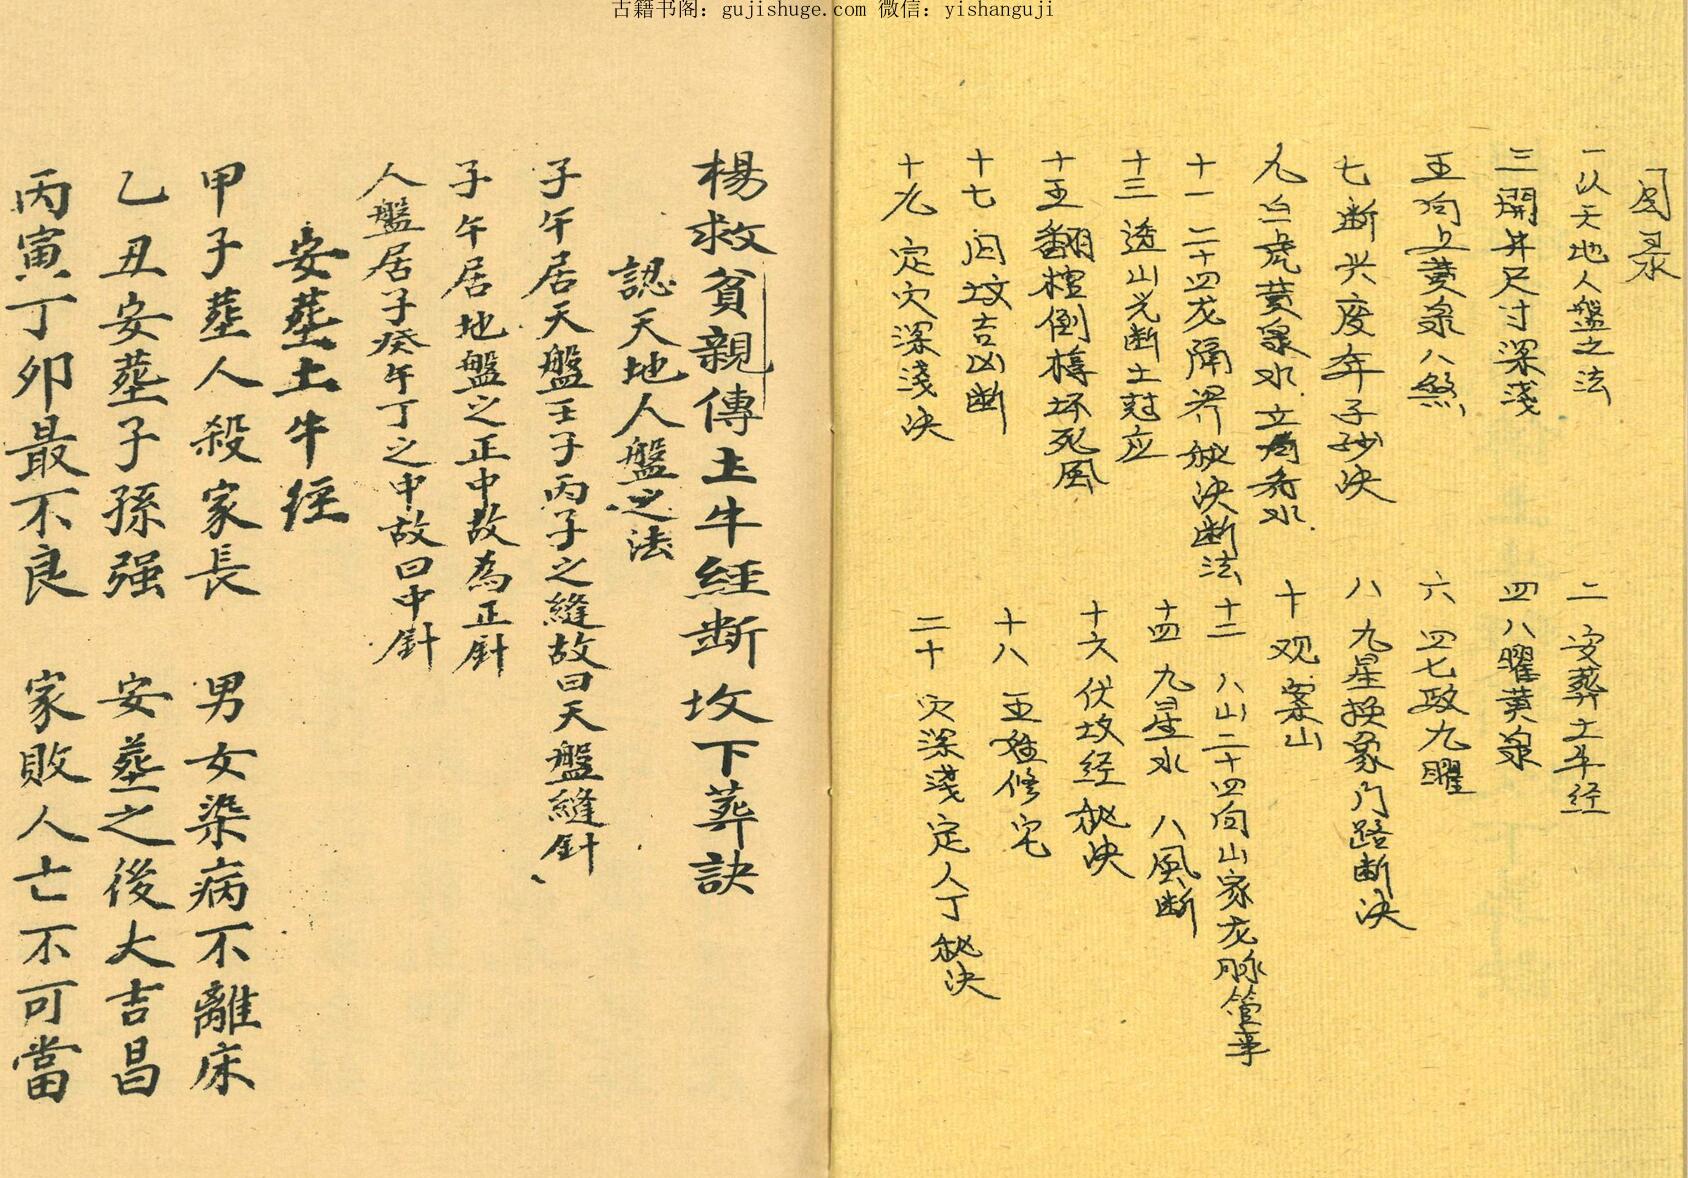 古籍书阁：gujishuge.com 微信：yishanguji
目录
一 以天地人盤之法
二 安葬土牛经
三 開井尺寸深淺
四 八曜黄泉
五 向上黄泉八煞
六 四七政九曜
七 断兴废年子砂决
八 九星换象门路断决
九 白虎黄泉水立局看水
十 观案山
十一 二十四龙隔界秘决断法
十二 八山二十四向山家龙脉管事
十三 透山光断土尅应
十四 九星水 八風断
十五 翻棺倒槨坏死風
十六 伏坟经秘决
十七 闷坟吉凶断
十八 修宅
十九 定穴深淺决
二十 穴深淺定人丁秘决
楊救貧親傳土牛經断坟下葬訣
認天地人盤之法
子午居天盤壬子丙子之縫故曰天盤縫針
子午居地盤之正中故為正針
人盤居子癸午丁之中故曰中針
安葬土牛徑
甲子葬人殺家長 男女染病不離床
乙丑安葬子孫强 安葬之後大吉昌
丙寅丁卯最不良 家敗人亡不可當